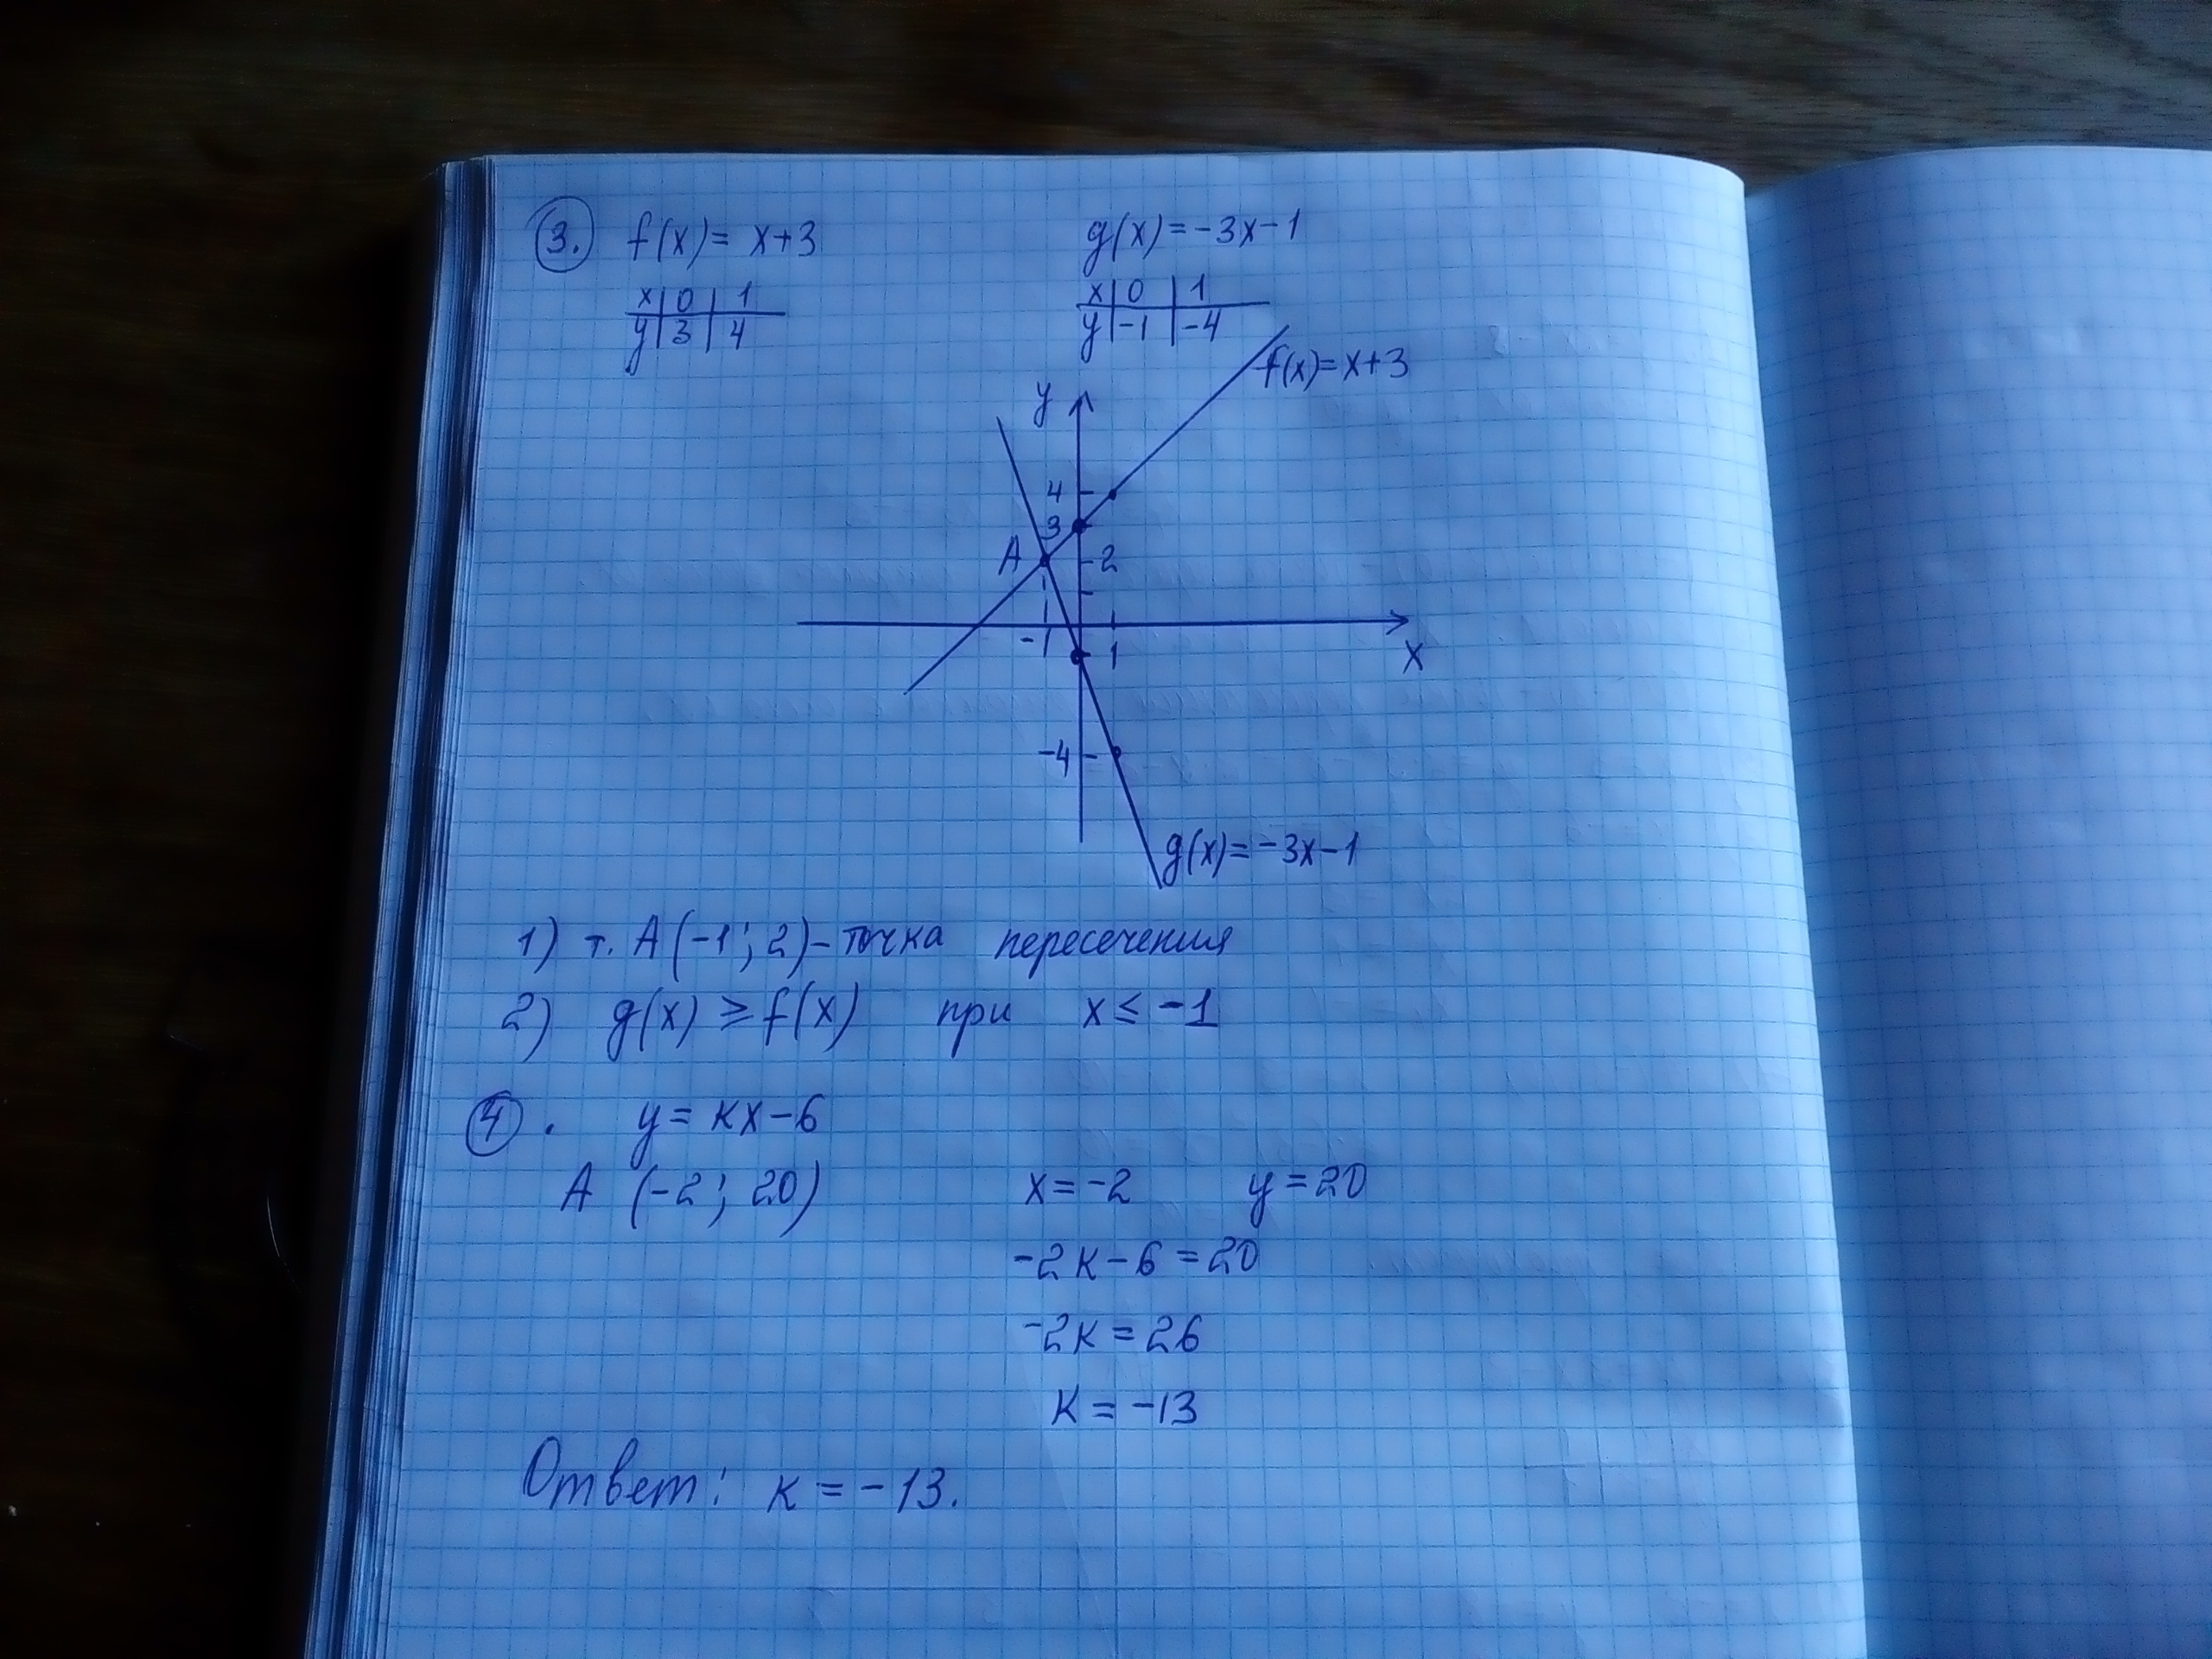 3. f(x)= x+3 g(x)=-3x-1
x 0 1 x 0 1
y 3 4 y -1 -4
f(x)=x+3
y
4
3
A 2
-1 1 x
-4
g(x)=-3x-1
1) т. A (-1; 2)-точка пересечения
2) g(x) ≥ f(x) при x ≤ -1
4. y= кx-6
A (-2; 20) x=-2 y=20
-2к-6=20
-2к=26
к=-13
Ответ: к=-13.